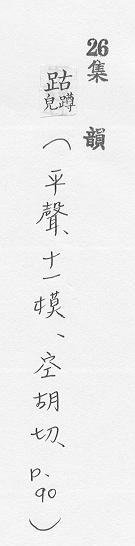 26集韻
跍蹲皃
(平聲、十一模、空胡切、p.90)